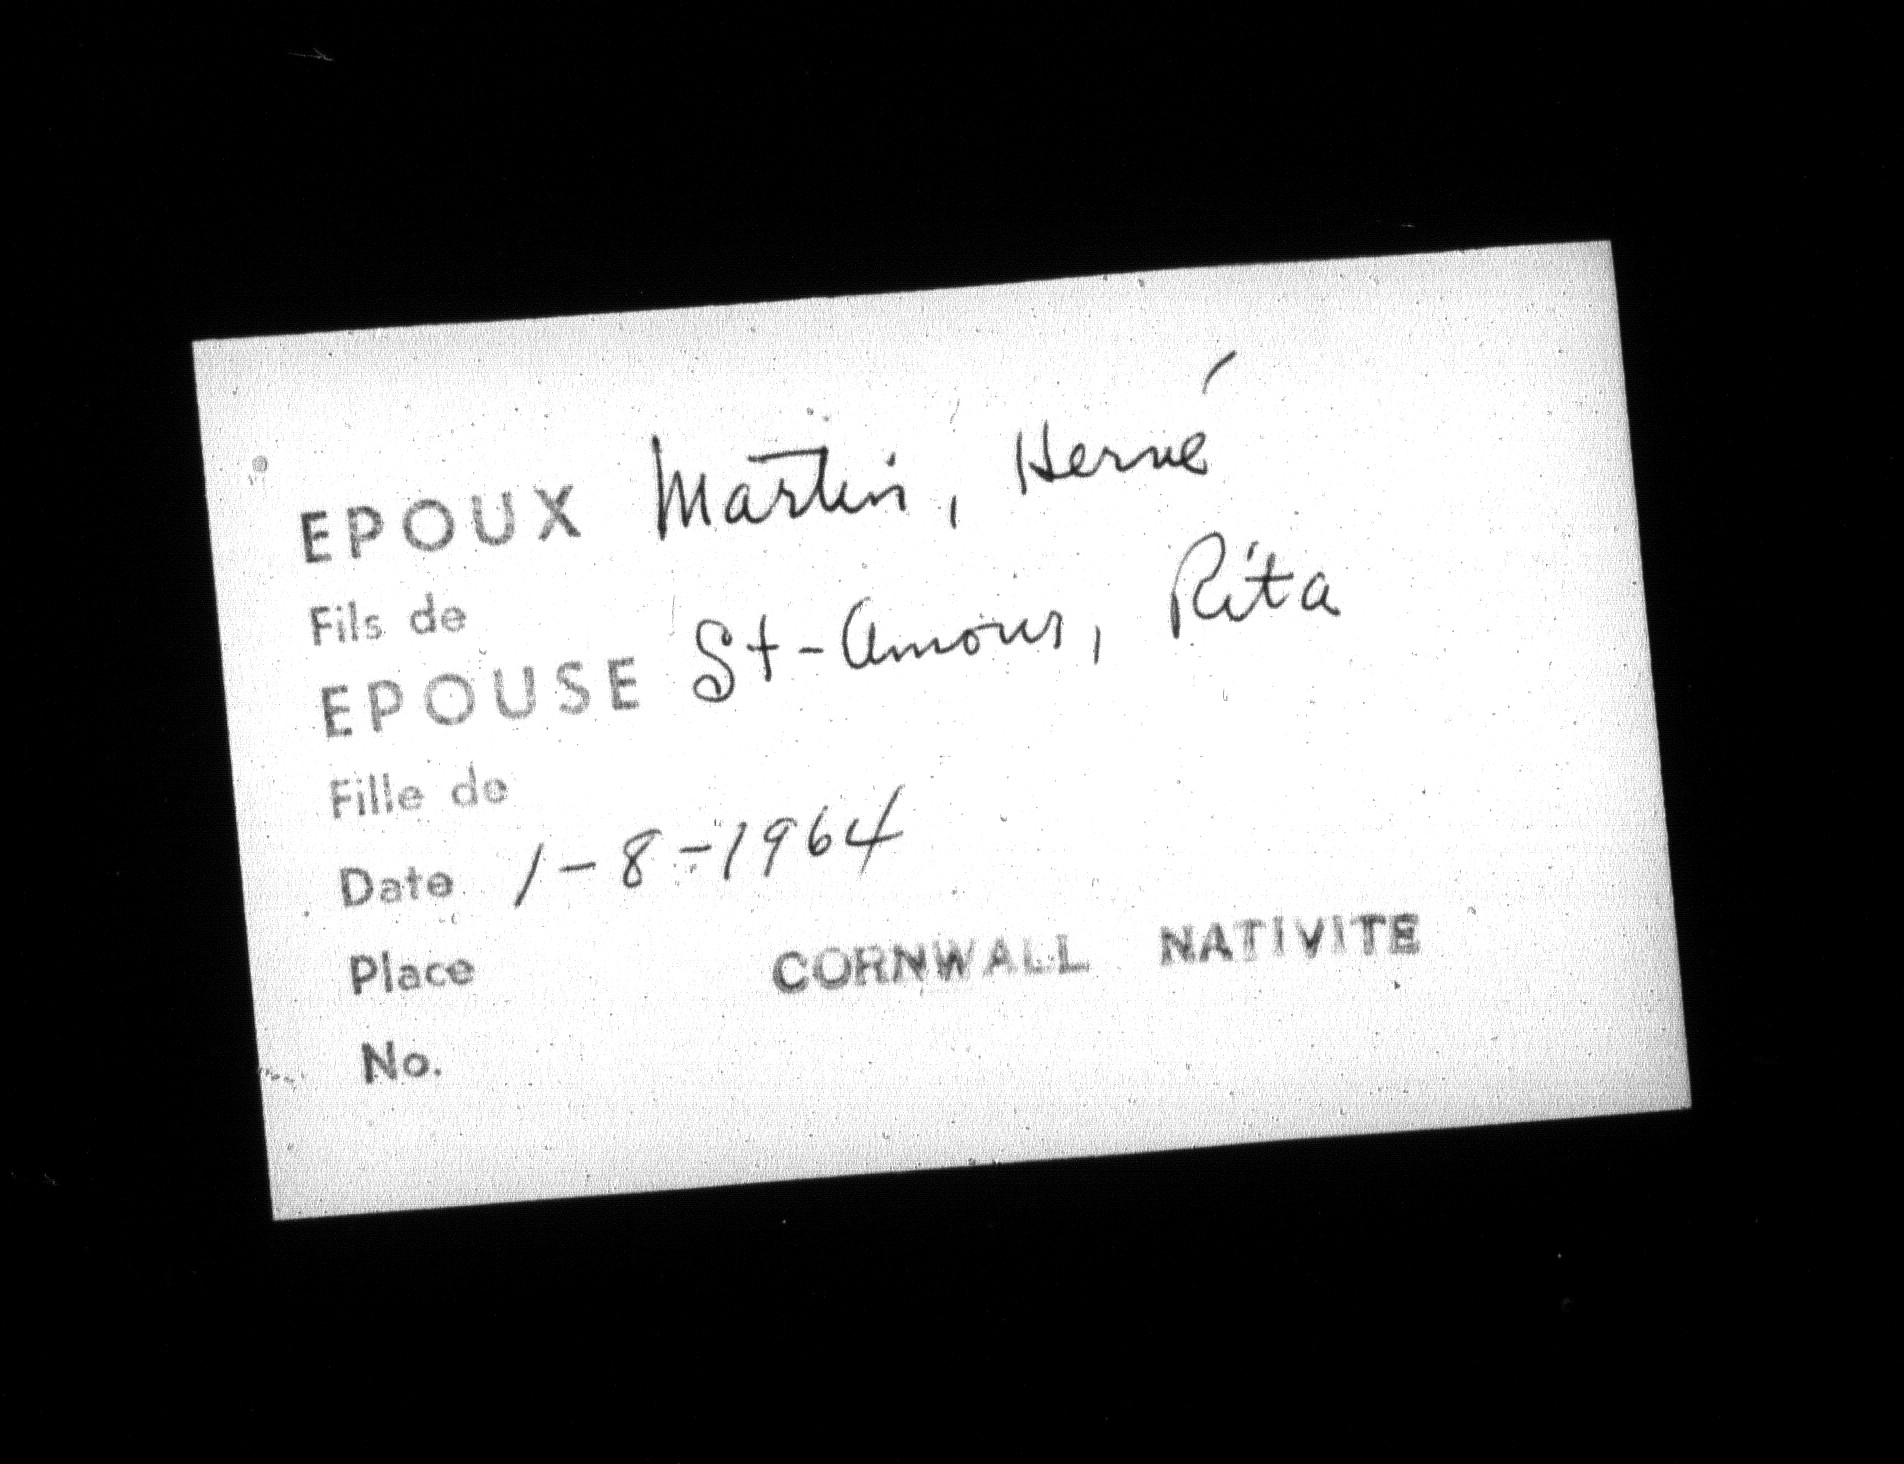 EPOUX Martin, Hervé
Fils de
EPOUSE St-Amour, Rita
Fille de
Date 1-8-1964
Place CORNWALL NATIVITE
No.